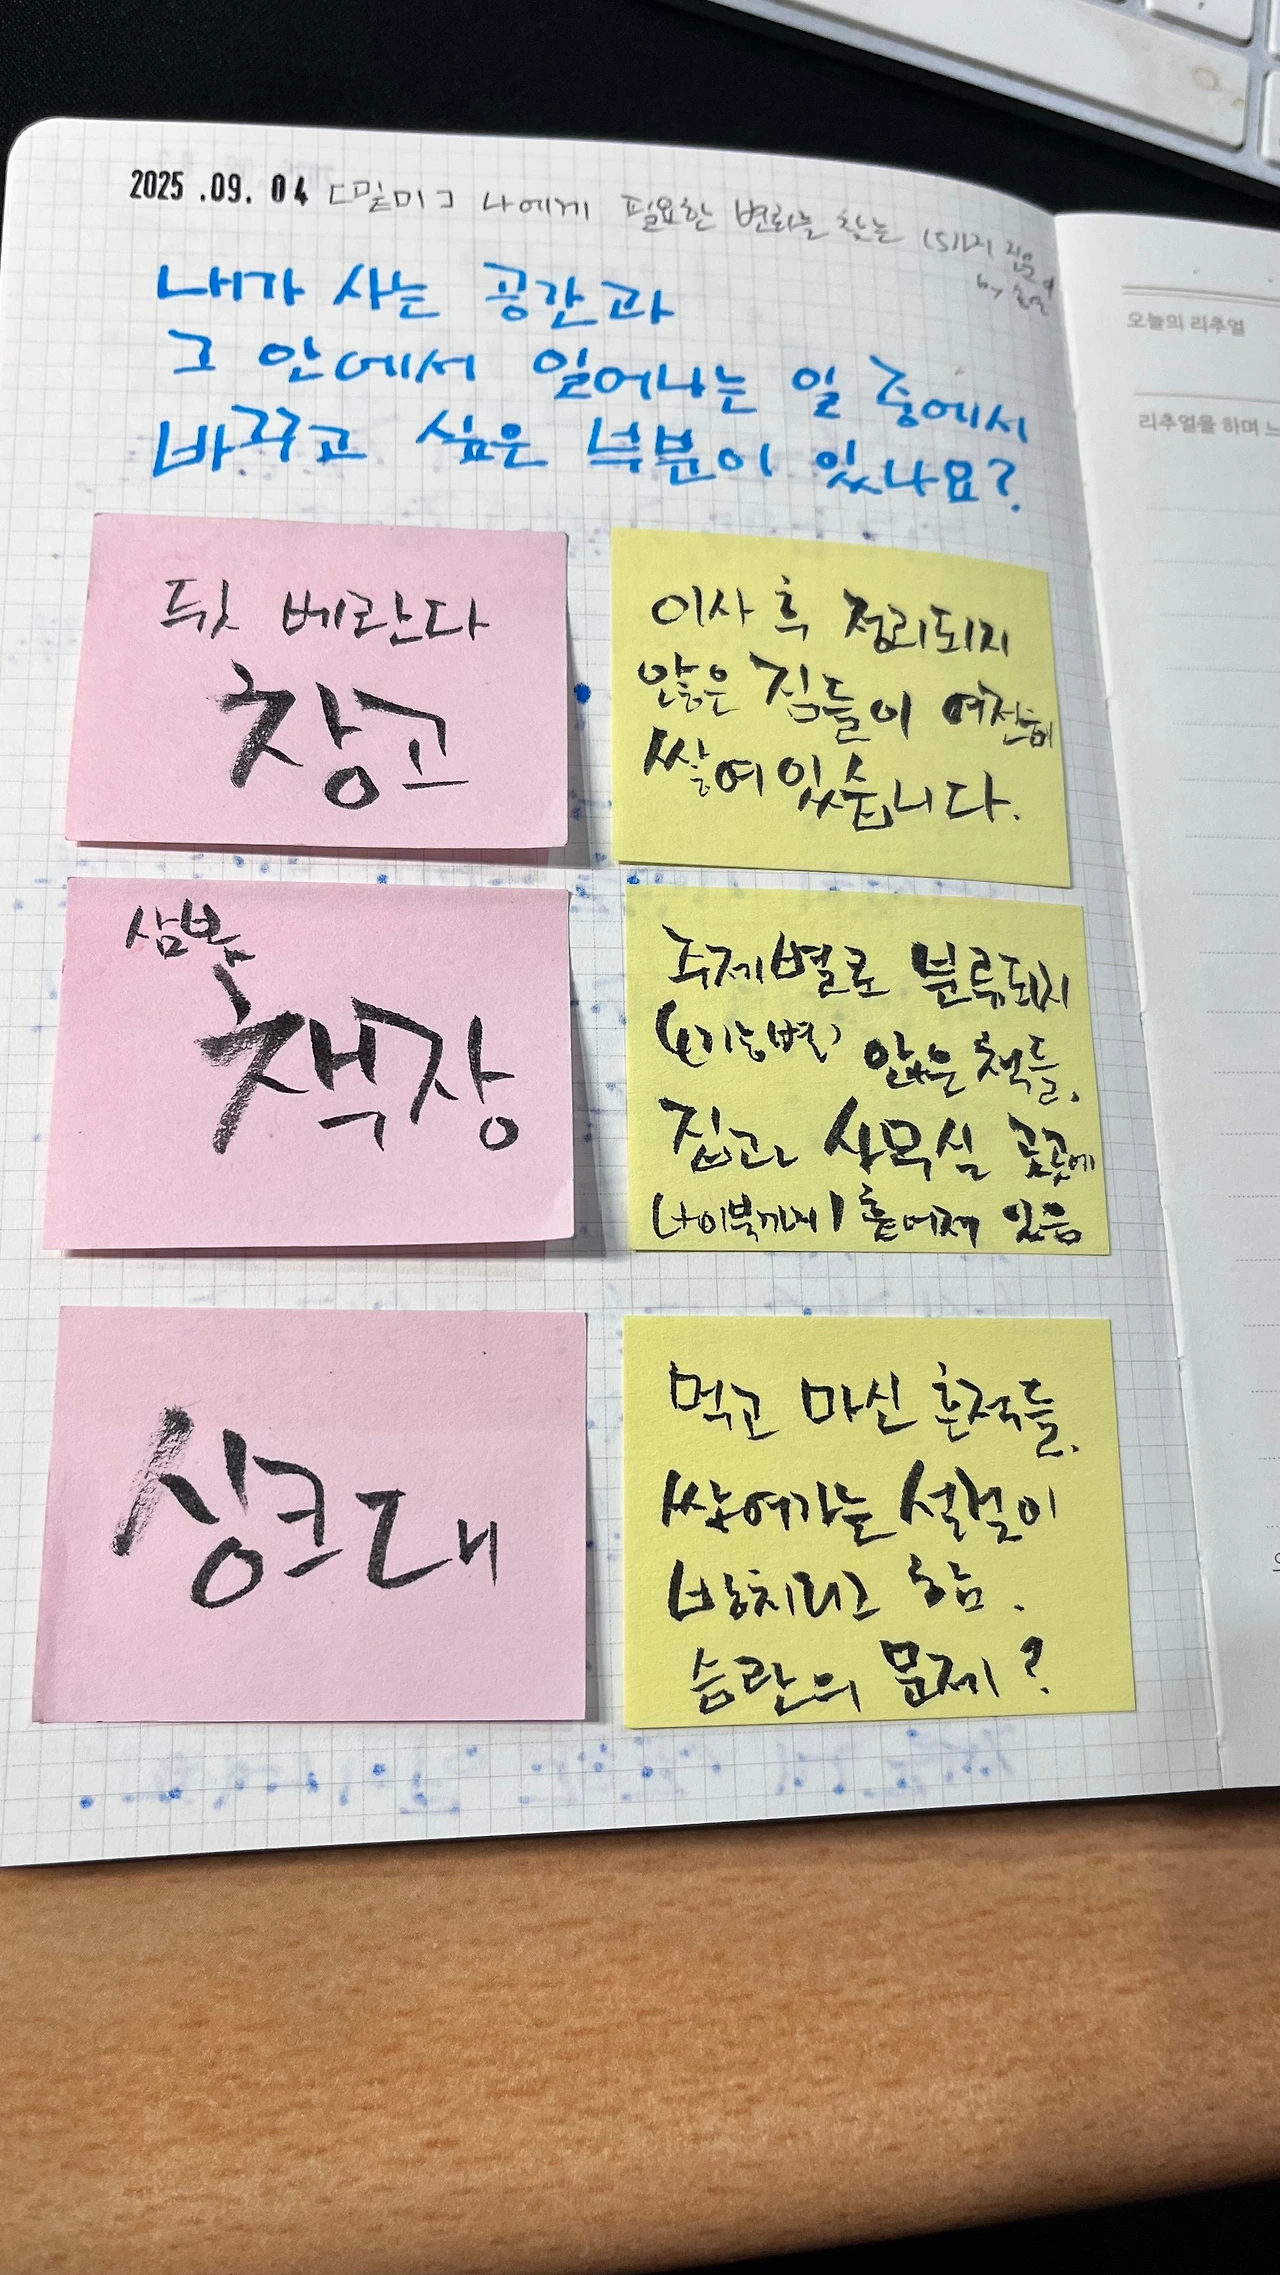 2025.09.04 [밑미] 나에게 필요한 변화를 찾는 15가지 질문
by
내가 사는 공간과
그 안에서 일어나는 일 중에서
바꾸고 싶은 부분이 있나요?
뒷 베란다
창고
이사 후 정리되지
않은 짐들이 여전히
쌓여있습니다.
삼봄
책장
주제별로 분류되지
(기능별) 않은 책들.
집과 상무실 곳곳에
(+이북까지) 흩어져 있음
싱크대
먹고 마신 흔적들.
쌓여가는 설거지이
방치되고 함.
습관의 문제?
오늘의 리추얼
리추얼을 하며 느